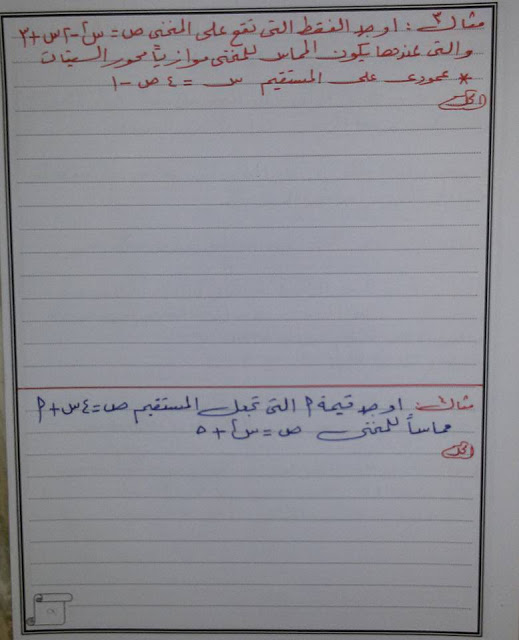 مثال ٣ : اوجد النقط التى تقع على المنحنى ص = س² - ٢س + ٣
والتى عندها يكون المماس للمنحنى موازياً محور السينات
* عمودى على المستقيم س = ٤ص - ١
الحل
مثال ٤ : اوجد قيمة م التى تجعل المستقيم ص = ٤س + م
مماساً للمنحنى ص = س² + ٥
الحل